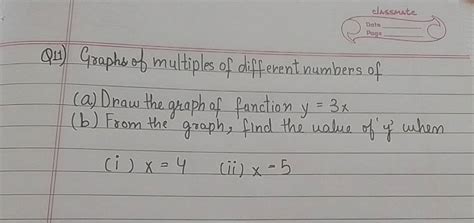 classmate
Date
Page
Q11) Graphs of multiples of different numbers of
(a) Draw the graph of function y = 3x
(b) From the graph, find the value of 'y' when
(i) x = 4 (ii) x - 5